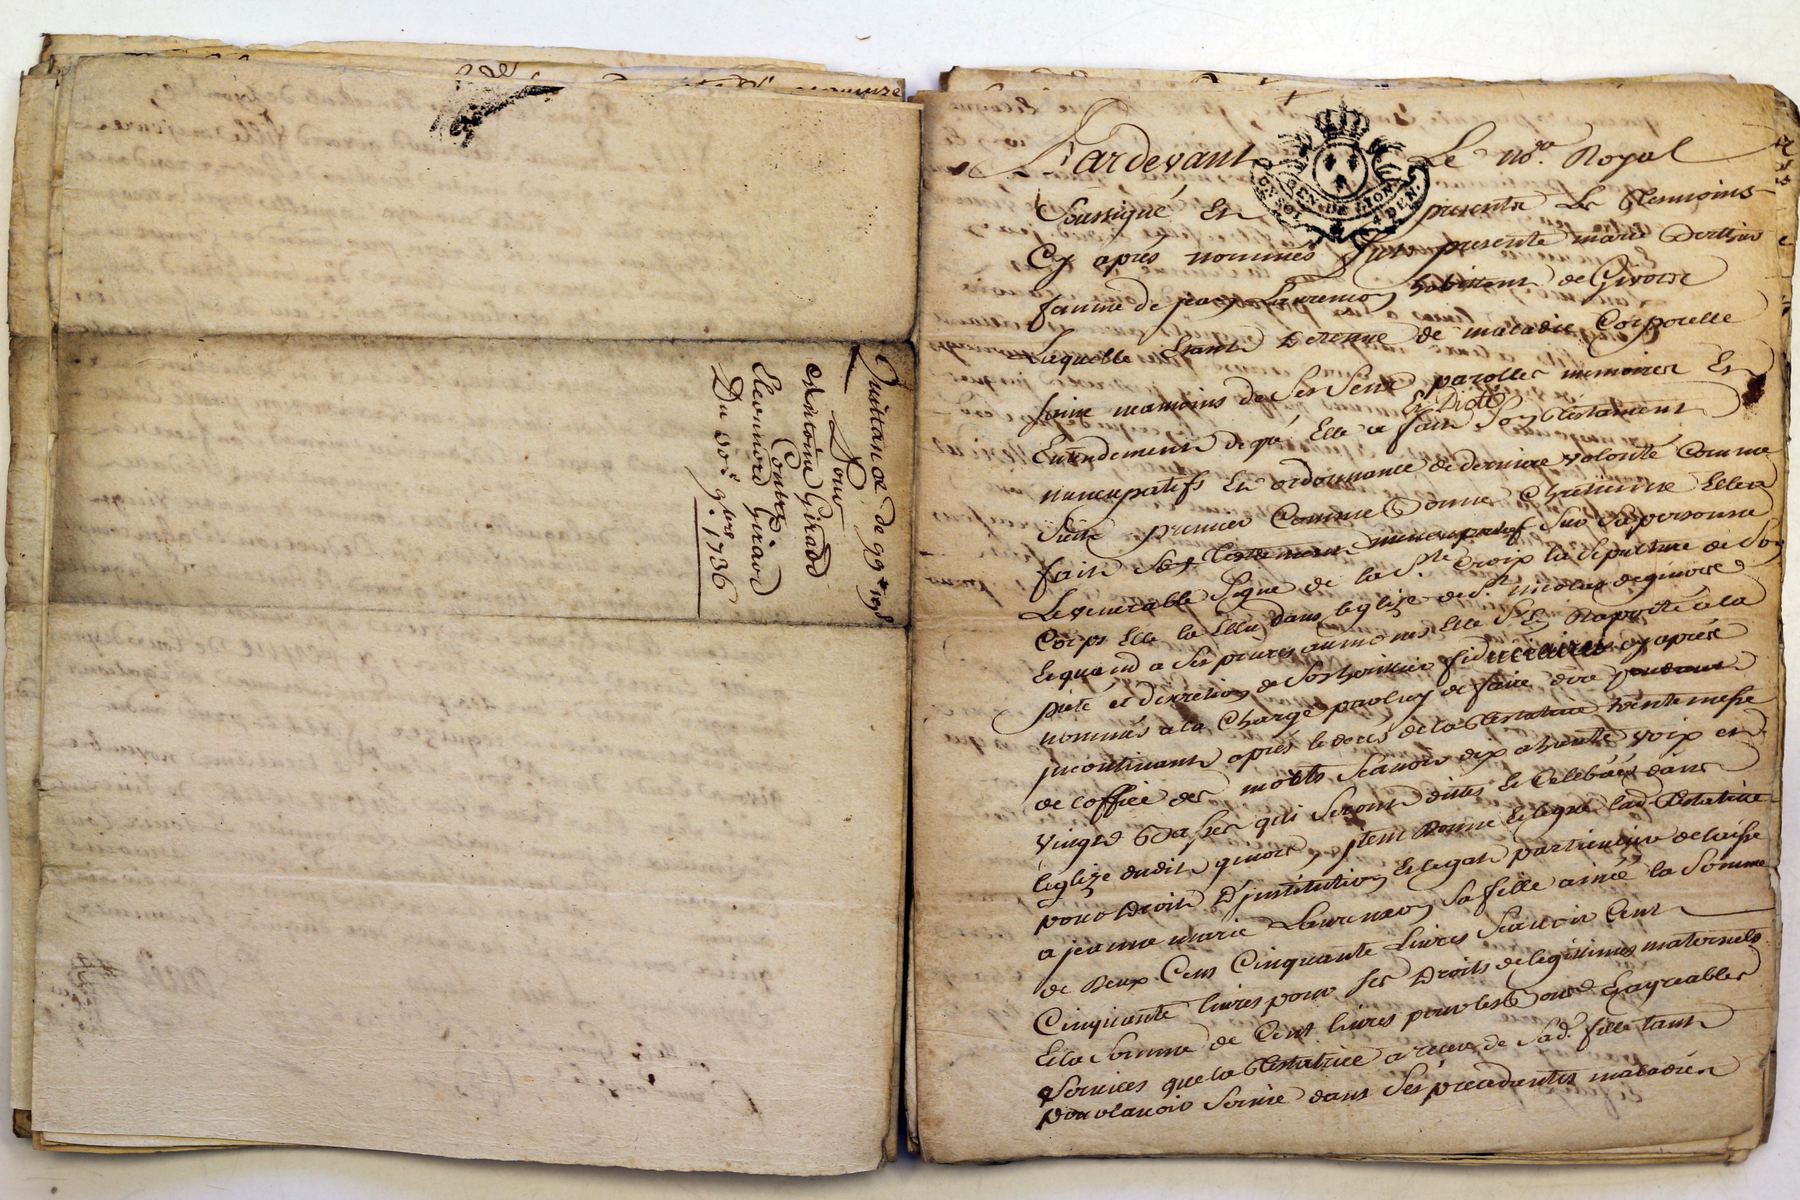 Quittance de 99# 19s 8
Pour
Antoine Girard
Contre
Eleonnord Girard
Du 30e 9bre 1736
Pardevant Le nore Royal
GEN. DE LION
UN SOL 4 DEN.
Soussigné Et presents Les Temoins
Cy après nommés fut presente marie
famme de jean Laurenson habittant de Givors
Laquelle Etant Detenue de maladie Corporelle
saine neamoins de Ses Sens parolles memoires Et
Entendement de gré Elle a fait Et Dicté Son Testament
nuncupatifs Et ordonnance de derniere volonté Comme
Suit premier Comme bonne Chretienne Elle a
fait Sur Sa personne
Le venerable Signe de la Ste Croix la Sepulture de Son
Corps Elle la Elliu dans leglise de St nicolas de givors
Et quand a Ses pauvres aumones Elle S'en Raporte a la
pieté et discretion de Son heritier fiduciaire cy après
nommés a la Charge par luy de faire dire
incontinant après le decés de la Testatrice trente messe
de l'office des morts Scavoir dix a haute voix et
vingt basses qui Seront dittes Et Celebrées dans
leglize dudit givors, jtem Donne Et legue lad Testatrice
pour Droit D'institution Et legat particulier delaisse
a jeanne marie Laurenson Sa fille ainée la Somme
de Deux Cens Cinquante Livres Scavoir Cent
Cinquante livres pour Ses Droits de legitimes maternels
Et la Somme de Cent livres pour les bons Et agreables
Services que la Testatrice a receu de Sad. fille tant
pour lavoir Servie dans Ses precedentes maladies